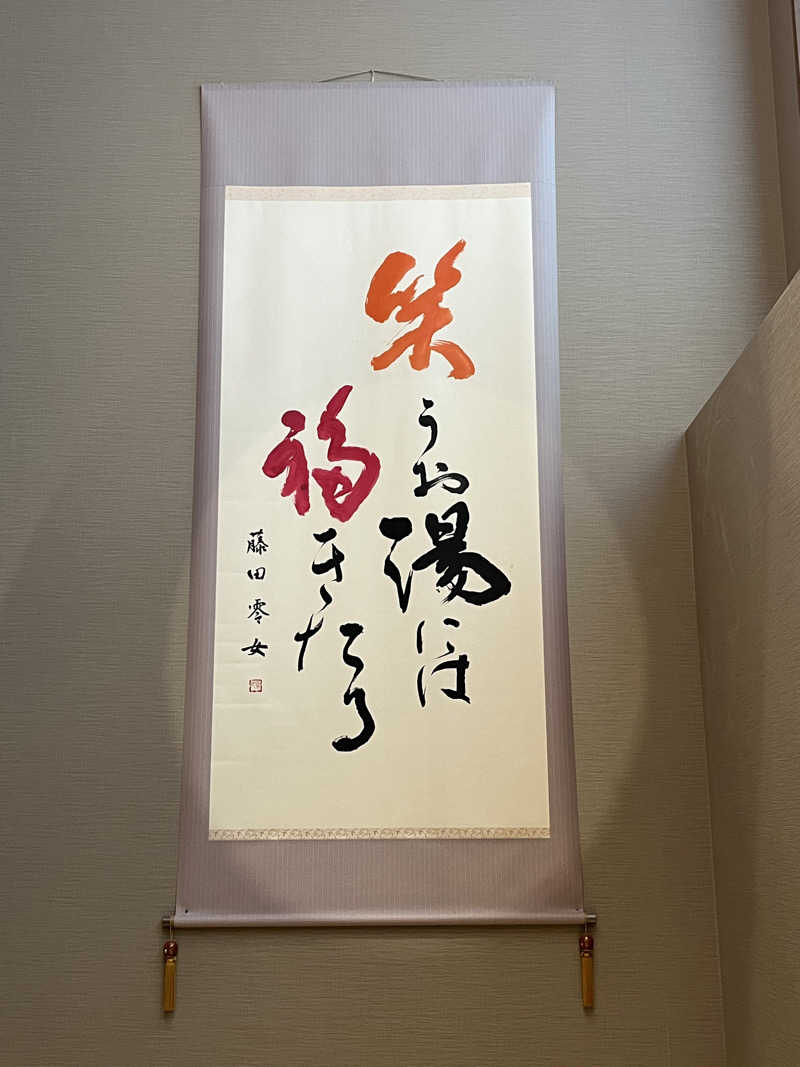 笑うお湯には
福きたる
藤田零女